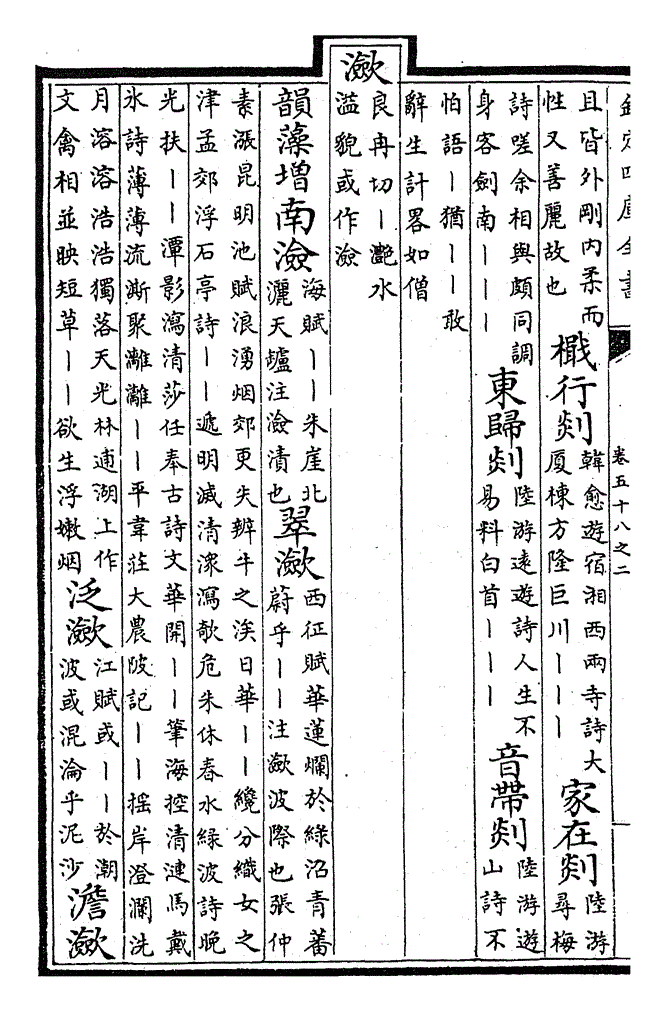 欽定四庫全書 卷五十八之二
且皆外剛内柔而
性又善麗故也
檝行剡
韓愈遊宿湘西兩寺詩大
厦棟方隆巨川丨丨丨
家在剡
陸游
尋梅
詩嗟余相與頗同調
身客劍南丨丨丨
東歸剡
陸游遠遊詩人生不
易料白首丨丨丨
音帶剡
陸游遊
山詩不
怕語丨猶丨丨敢
辭生計畧如僧
瀲
良冉切丨灔水
溢貌或作澰
韻藻增南澰
海賦丨丨朱崖北
灑天墟注澰漬也
翠瀲
西征賦華蓮爛於綠沼青蕃
蔚乎丨丨注瀲波際也張仲
素漲昆明池賦浪湧烟郊更失辨牛之涘日華丨丨纔分織女之
津孟郊浮石亭詩丨丨遞明滅清潨瀉欹危朱休春水綠波詩晚
光扶丨丨潭影瀉清莎任奉古詩文華開丨丨筆海控清漣馬戴
氷詩薄薄流澌聚灕灕丨丨平韋莊大農陂記丨丨揺岸澄瀾洗
月溶溶浩浩獨落天光林逋湖上作
文禽相並映短草丨丨欲生浮嫩烟
泛瀲
江賦或丨丨於潮
波或混淪乎泥沙
澹瀲